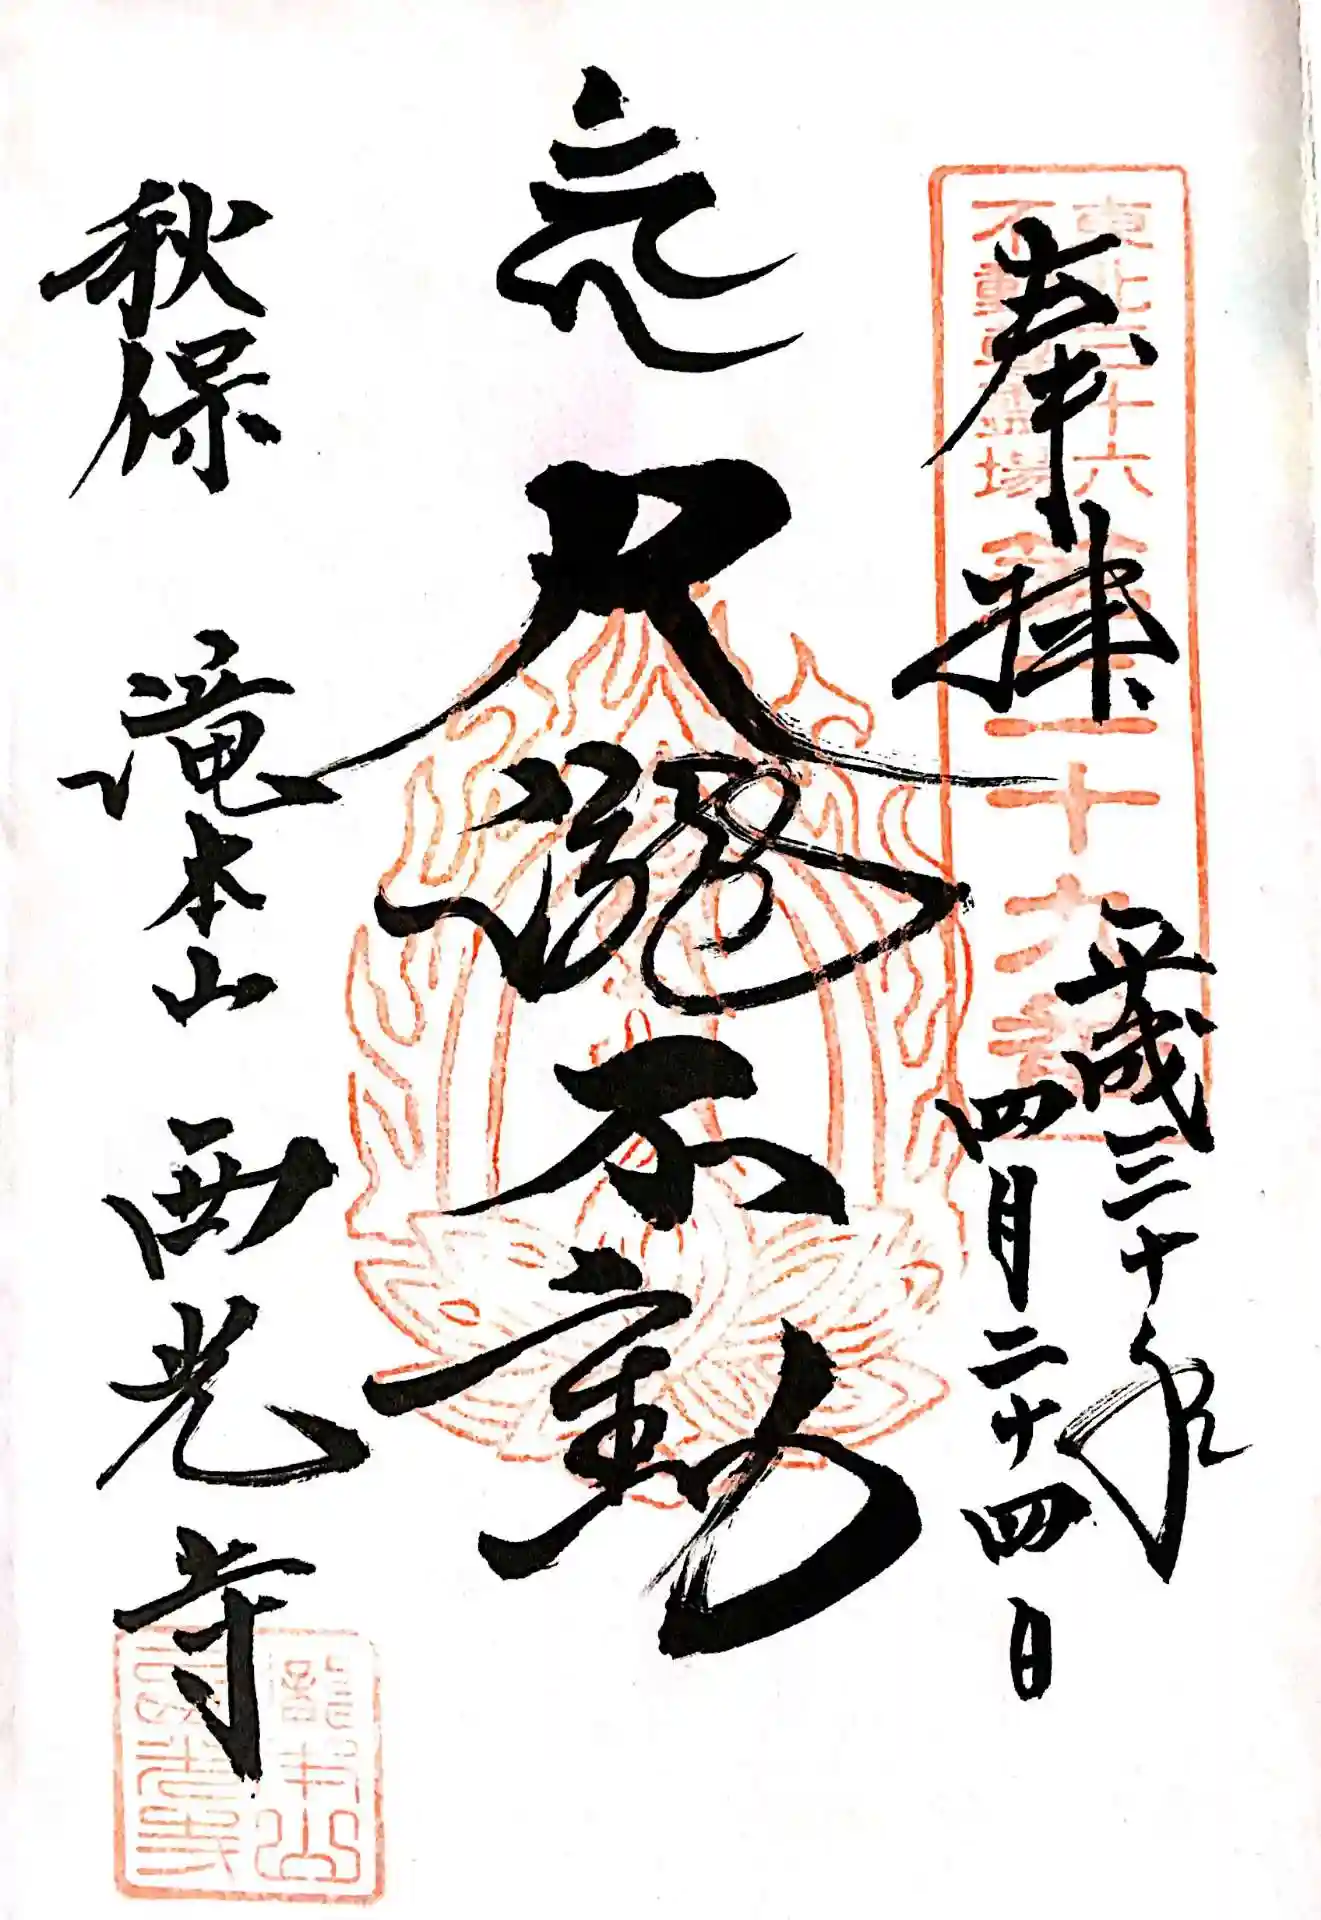 奉拝
東北三十六
不動尊霊場
第二十九番
平成三十年
四月二十四日
大滝不動
秋保 滝本山 西光寺
瀧本山
西光寺